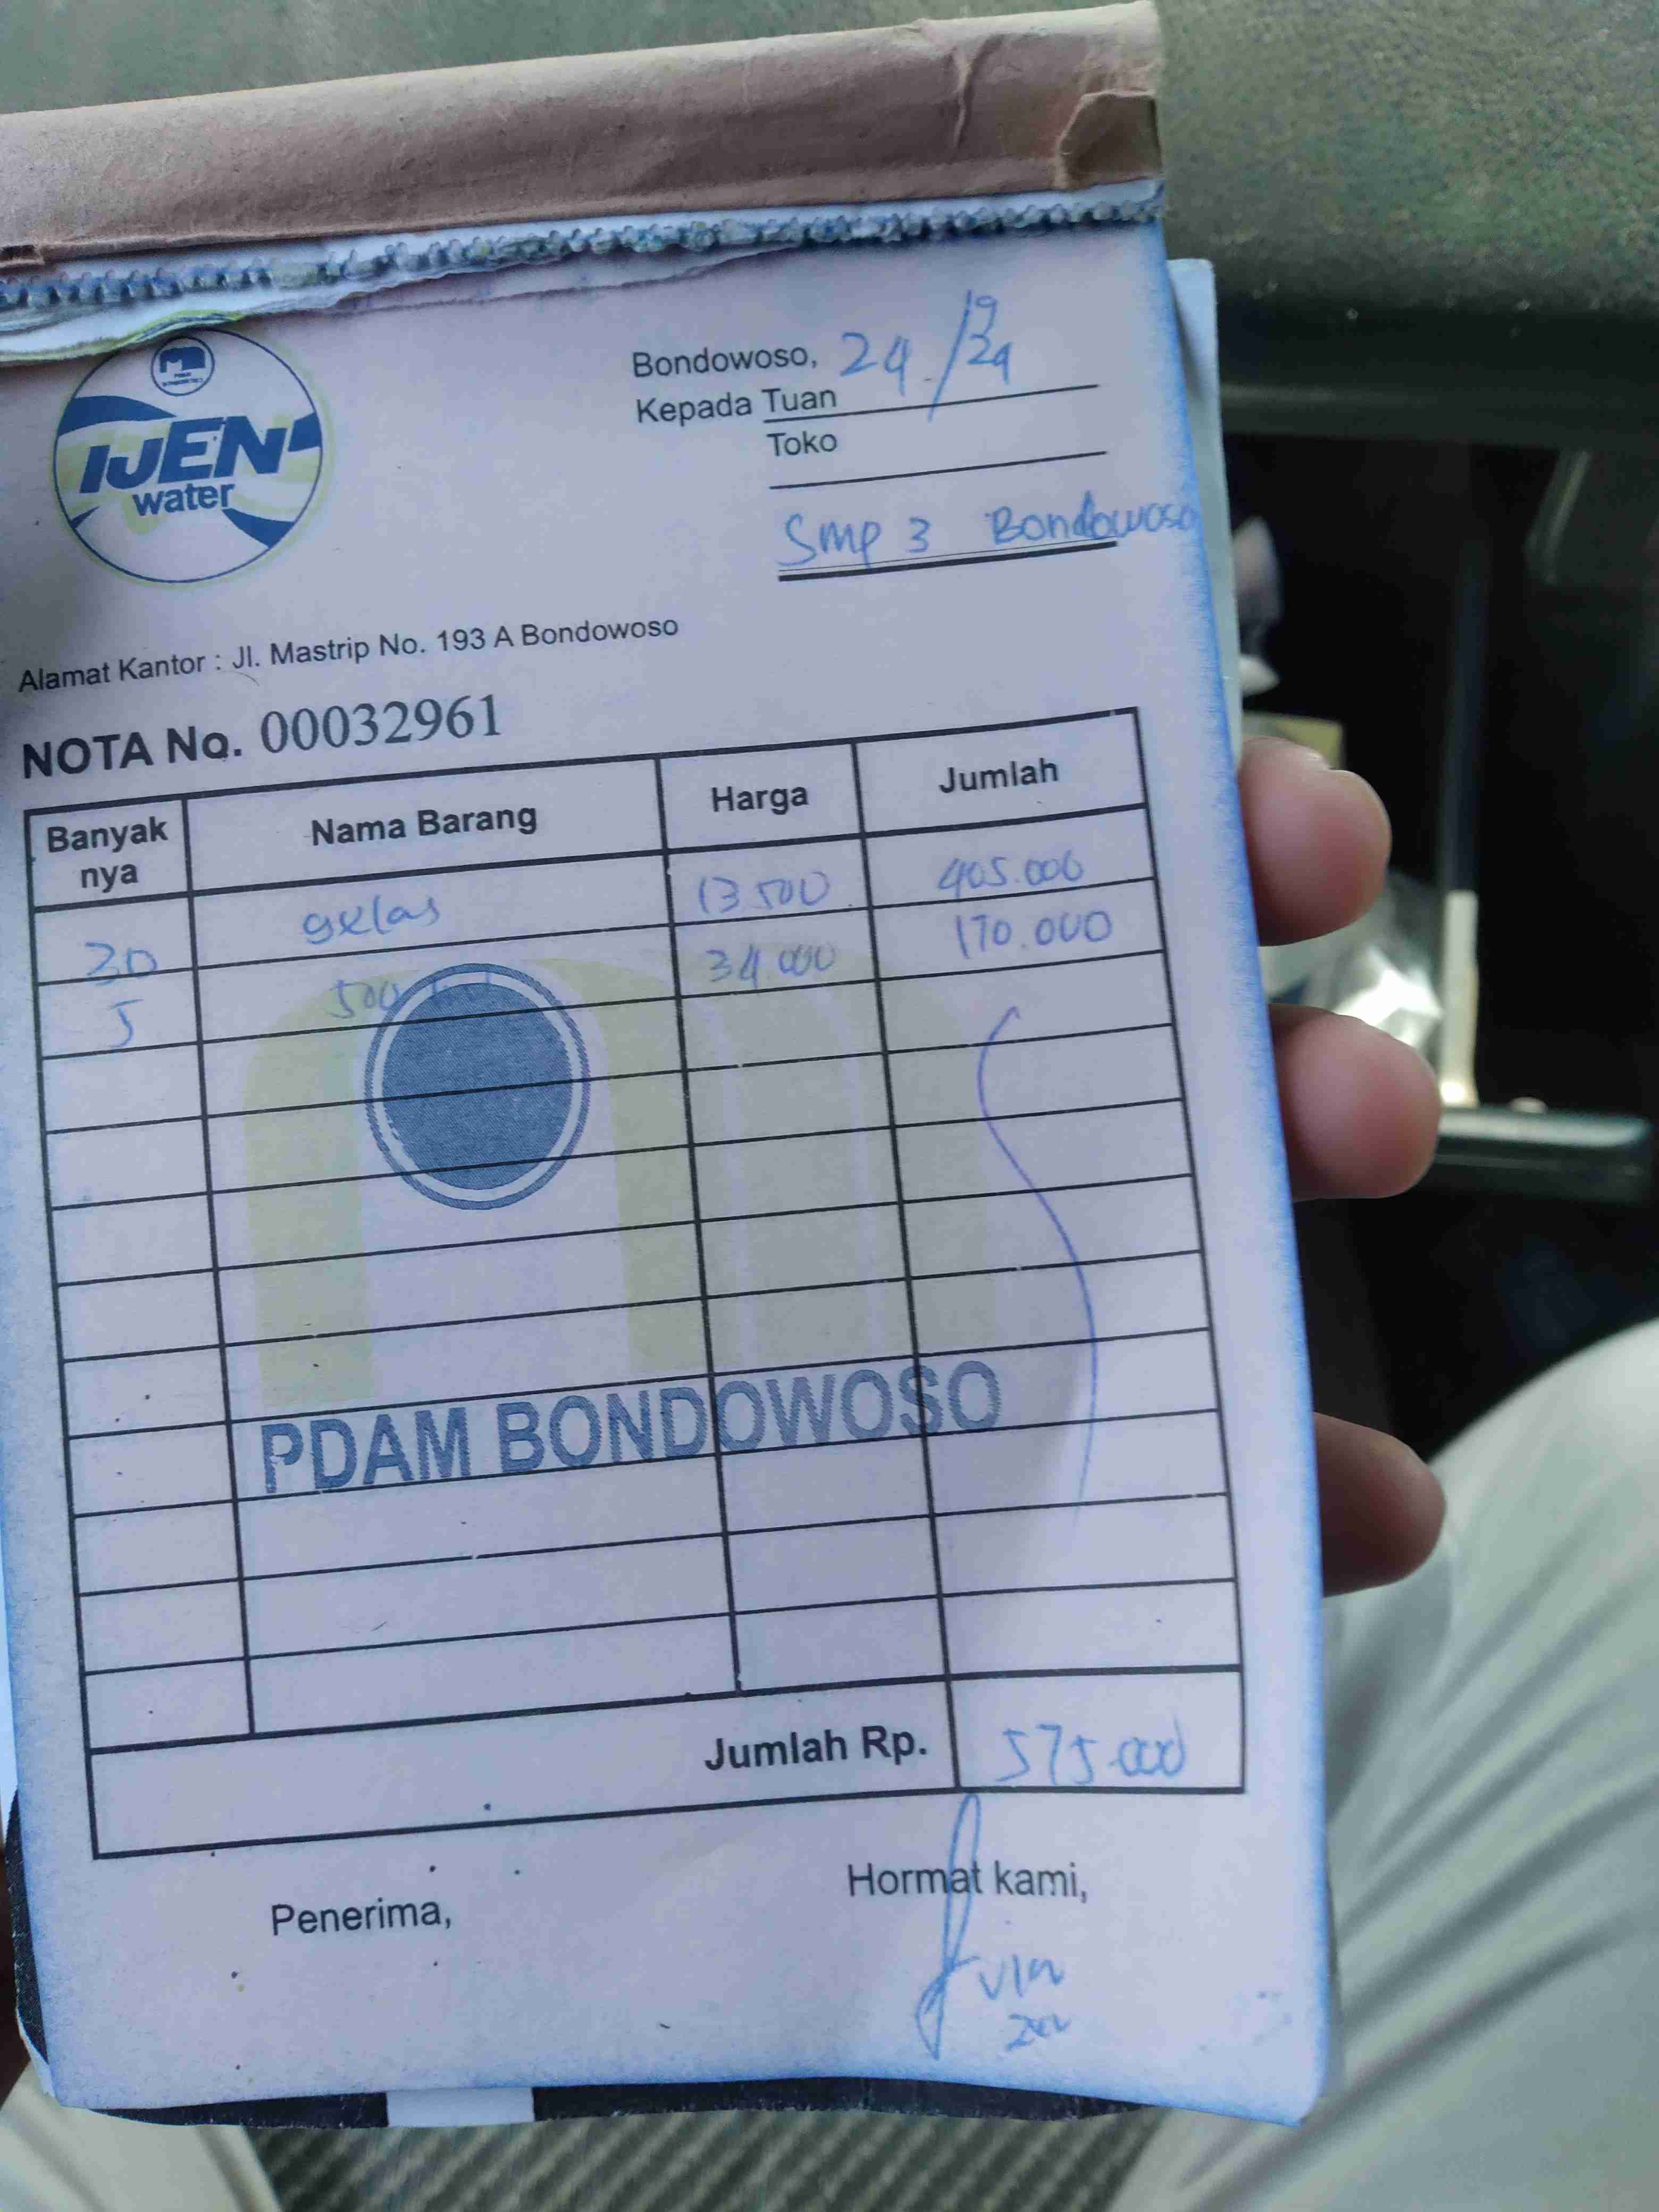 IJEN
water
Bondowoso, 24 /9
24
Kepada Tuan
Toko
Smp 3 Bondowoso
Alamat Kantor : Jl. Mastrip No. 193 A Bondowoso
NOTA No. 00032961
Banyak nya Nama Barang Harga Jumlah
30 gelas 13.500 405.000
5 500 ml 34.000 170.000
PDAM BONDOWOSO
Jumlah Rp. 575.000
Penerima,
Hormat kami,